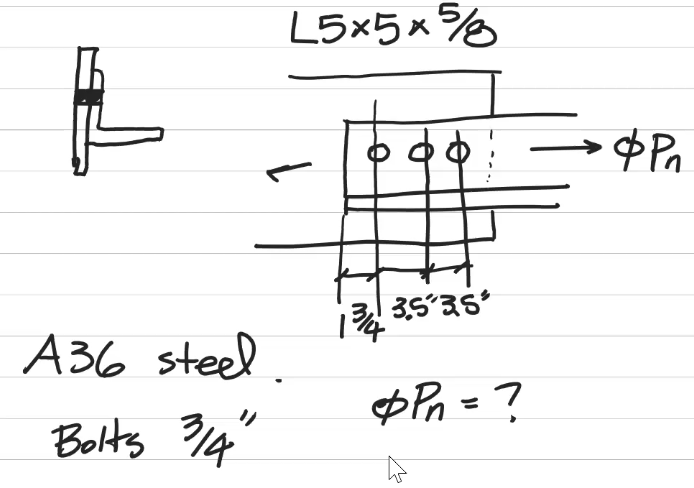 L5×5×5/8
→ φPn
1 3/4 3.5" 3.5"
A36 steel.
φPn = ?
Bolts 3/4"